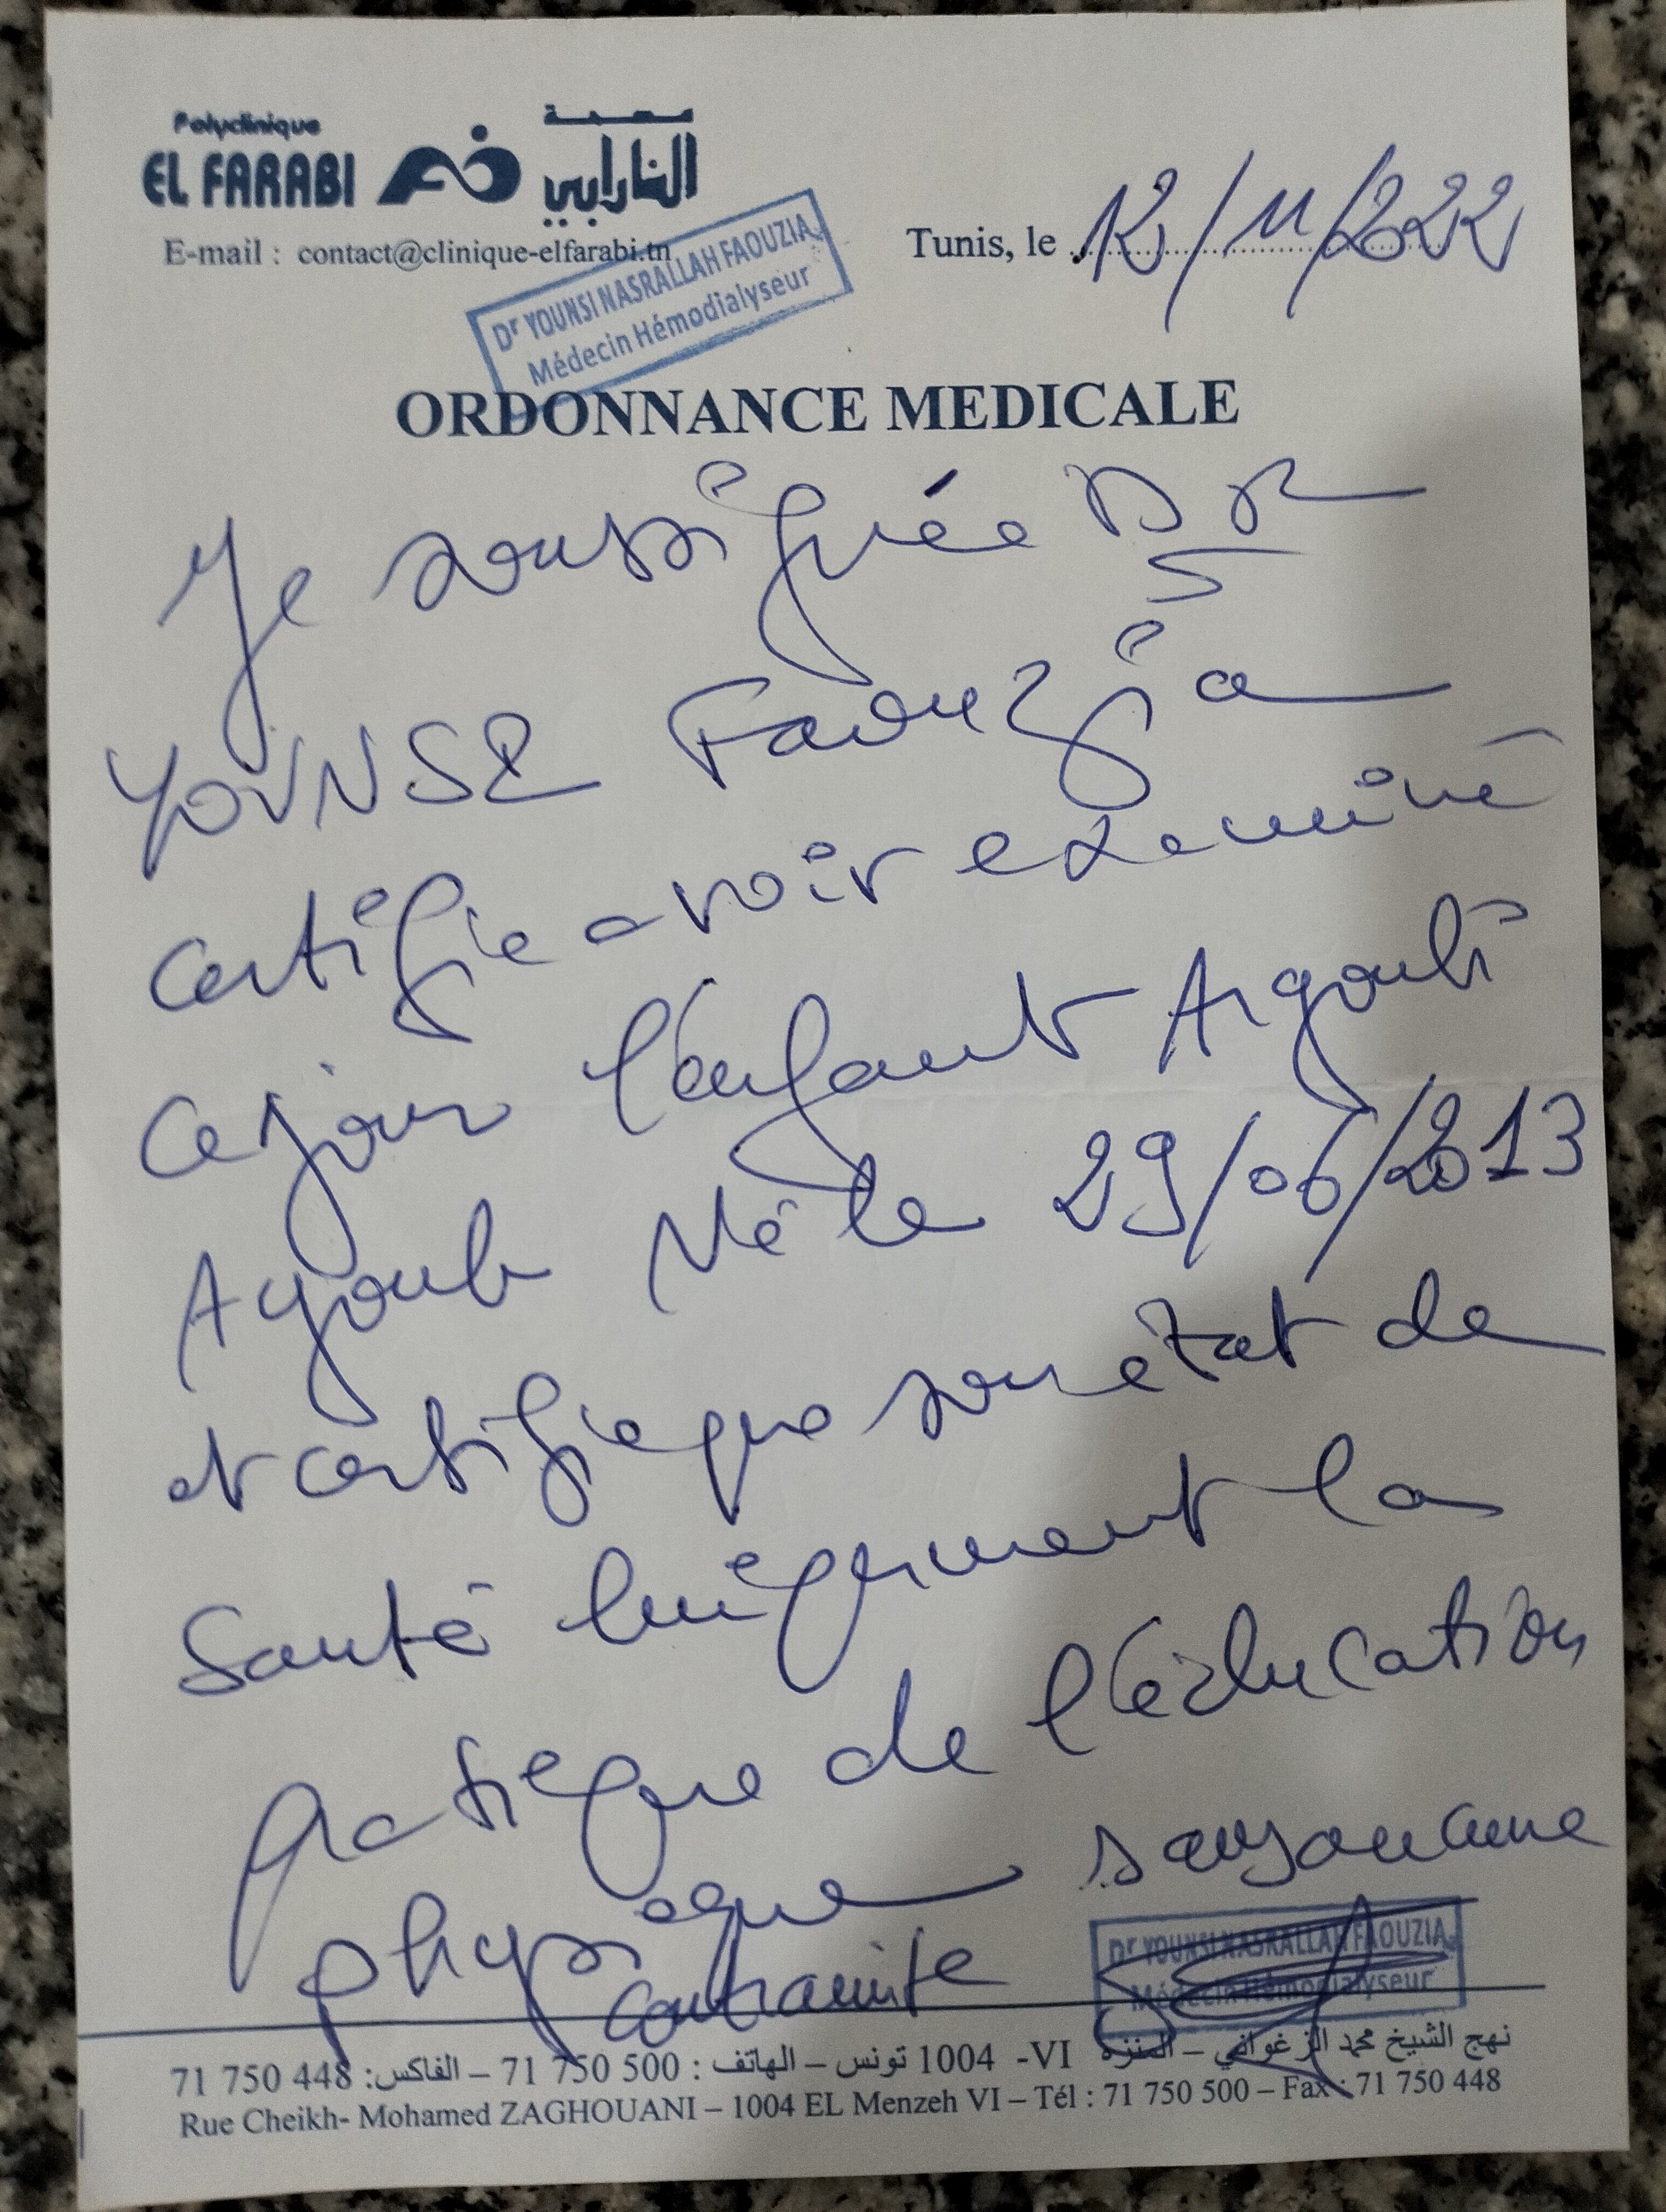 Polyclinique
EL FARABI
مصحة
الفارابي
E-mail : contact@clinique-elfarabi.tn
Dr YOUNSI NASRALLAH FAOUZIA
Médecin Hémodialyseur
Tunis, le 12/11/2022
ORDONNANCE MEDICALE
Je soussignée DR
YOUNSI Faouzia
certifie avoir examiné
ce jour l'enfant Argoubi
Ayoub Né le 29/06/2013
et certifie que son état de
Santé lui permet la
pratique de l'éducation
physique sans aucune
contrainte
Dr YOUNSI NASRALLAH FAOUZIA
Médecin Hémodialyseur
نهج الشيخ محمد الزغواني – المنزه VI- 1004 تونس – الهاتف : 500 750 71 – الفاكس: 448 750 71
Rue Cheikh- Mohamed ZAGHOUANI – 1004 EL Menzeh VI – Tél : 71 750 500 – Fax : 71 750 448